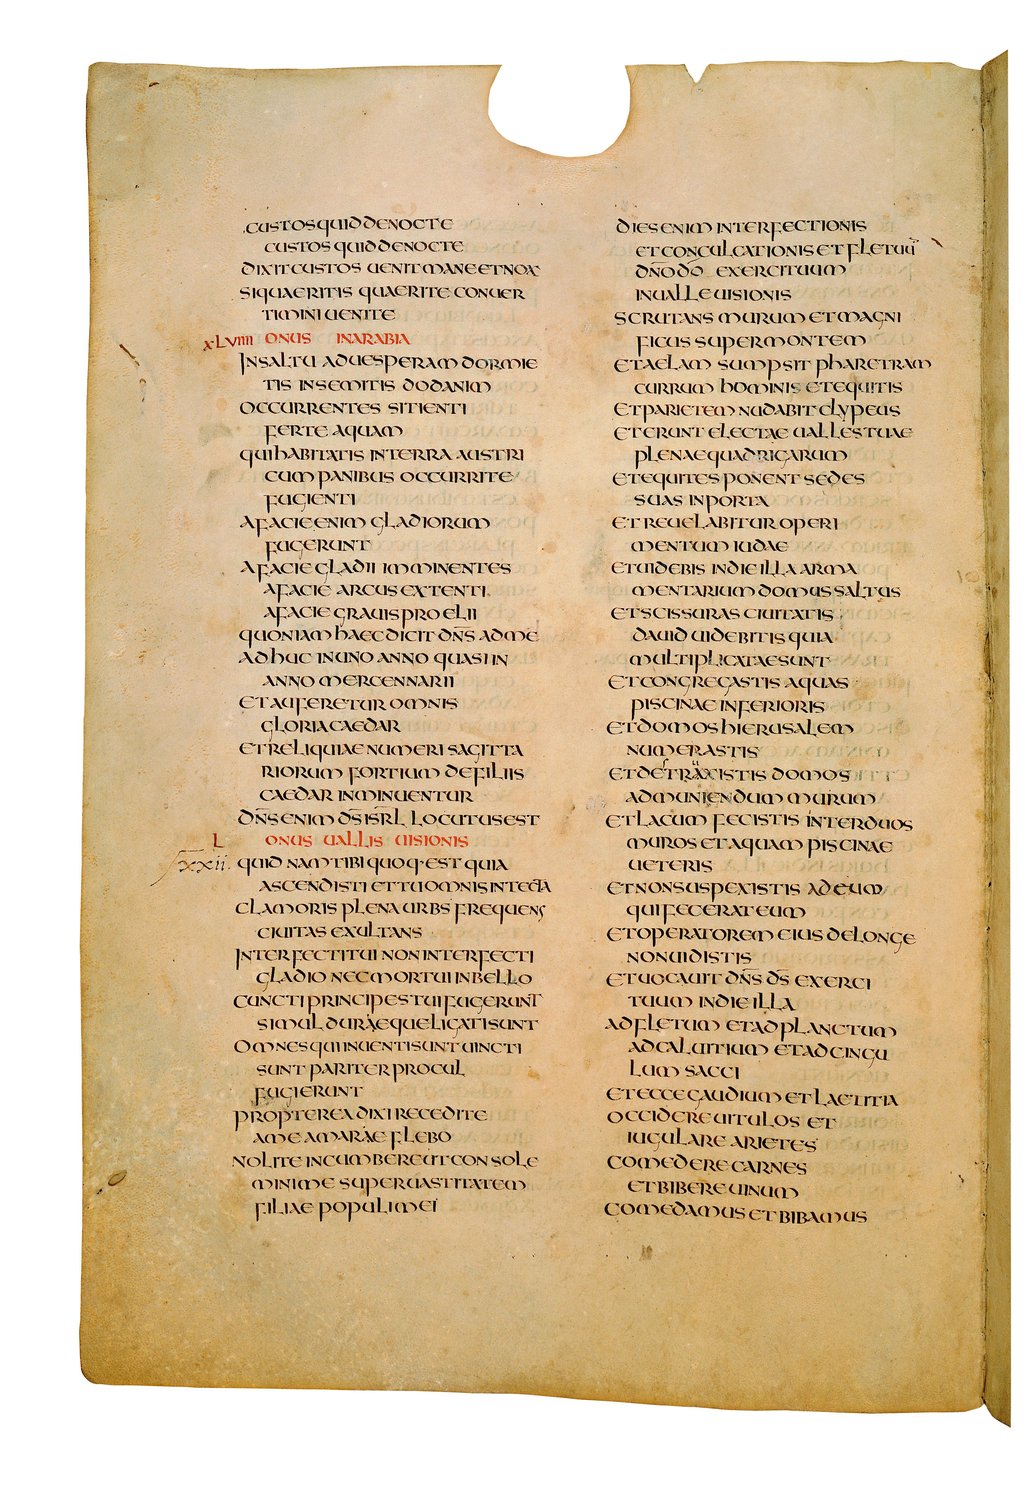 CUSTOS QUID DE NOCTE
CUSTOS QUID DE NOCTE
DIXIT CUSTOS UENIT MANE ET NOX
SI QUAERITIS QUAERITE CONUER
TIMINI UENITE
XLVIIII ONUS IN ARABIA
IN SALTU AD UESPERAM DORMIE
TIS IN SEMITIS DODANIM
OCCURRENTES SITIENTI
FERTE AQUAM
QUI HABITATIS IN TERRA AUSTRI
CUM PANIBUS OCCURRITE
FUGIENTI
A FACIE ENIM GLADIORUM
FUGERUNT
A FACIE GLADII IMMINENTES
A FACIE ARCUS EXTENTI
A FACIE GRAUIS PROELII
QUONIAM HAEC DICIT DN̄S AD ME
ADHUC IN UNO ANNO QUASI IN
ANNO MERCENNARII
ET AUFERETUR OMNIS
GLORIA CAEDAR
ET RELIQUIAE NUMERI SAGITTA
RIORUM FORTIUM DE FILIIS
CAEDAR INMINUENTUR
DN̄S ENIM D̄S ISRL̄ LOCUTUS EST
L ONUS UALLIS UISIONIS
xxii. QUIDNAM TIBI QUOQ· EST QUIA
ASCENDISTI ET TU OMNIS IN TECTA
CLAMORIS PLENA URBS FREQUENS
CIUITAS EXULTANS
INTERFECTI TUI NON INTERFECTI
GLADIO NEC MORTUI IN BELLO
CUNCTI PRINCIPES TUI FUGERUNT
SIMUL DURAEQUE LIGATI SUNT
OMNES QUI INUENTI SUNT UINCTI
SUNT PARITER PROCUL
FUGIERUNT
PROPTEREA DIXI RECEDITE
A ME AMARAE FLEBO
NOLITE INCUMBERE UT CONSOLE
MINI ME SUPER UASTITATEM
FILIAE POPULI MEI
DIES ENIM INTERFECTIONIS
ET CONCULCATIONIS ET FLETUU̅
DN̄O D̄O EXERCITUUM
IN UALLE UISIONIS
SCRUTANS MURUM ET MAGNI
FICUS SUPER MONTEM
ET AELAM SUMPSIT PHARETRAM
CURRUM HOMINIS ET EQUITIS
ET PARIETEM NUDABIT CLYPEUS
ET ERUNT ELECTAE UALLES TUAE
PLENAE QUADRIGARUM
ET EQUITES PONENT SEDES
SUAS IN PORTA
ET REUELABITUR OPERI
MENTUM IUDAE
ET UIDEBIS IN DIE ILLA ARMA
MENTARIUM DOMUS SALTUS
ET SCISSURAS CIUITATIS
DAUID UIDEBITIS QUIA
MULTIPLICATAE SUNT
ET CONGREGASTIS AQUAS
PISCINAE INFERIORIS
ET DOMOS HIERUSALEM
NUMERASTIS
ET DESTRAXISTIS DOMOS
AD MUNIENDUM MURUM
ET LACUM FECISTIS INTER DUOS
MUROS ET AQUAM PISCINAE
UETERIS
ET NON SUSPEXISTIS AD EUM
QUI FECERAT EUM
ET OPERATOREM EIUS DE LONGE
NON UIDISTIS
ET UOCAUIT DN̄S D̄S EXERCI
TUUM IN DIE ILLA
AD FLETUM ET AD PLANCTUM
AD CALUITIUM ET AD CINGU
LUM SACCI
ET ECCE GAUDIUM ET LAETITIA
OCCIDERE UITULOS ET
IUGULARE ARIETES
COMEDERE CARNES
ET BIBERE UINUM
COMEDAMUS ET BIBAMUS